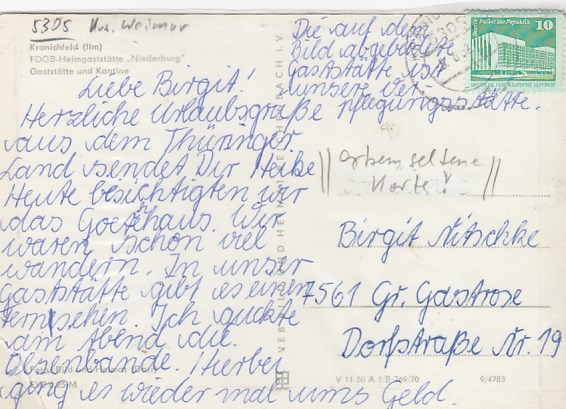 5305 Krs. Weimar
Kranichfeld (Ilm)
FDGB-Heimgaststätte "Niederburg"
Gaststätte und Kantine
Die auf dem
Bild abgebildete
Gaststätte ist
unsere Ver-
pflegungsstätte.
Liebe Birgit!
Herzliche Urlaubsgrüße
aus dem Thüringer
Land sendet Dir Heike
Heute besichtigten wir
das Goethaus. Wir
waren schon viel
wandern. In unser
Gaststätte gibt es einen
Fernsehen. Ich guckte
am Abend die
Olsenbande. Hierbei
ging es wieder mal ums Geld.
Palast der Republik 10
seltene
Karte!
Birgit Nitschke
7561 Gr. Gastrose
Dorfstraße Nr. 19
V 11 50 A 1/B 769/70
9/4783